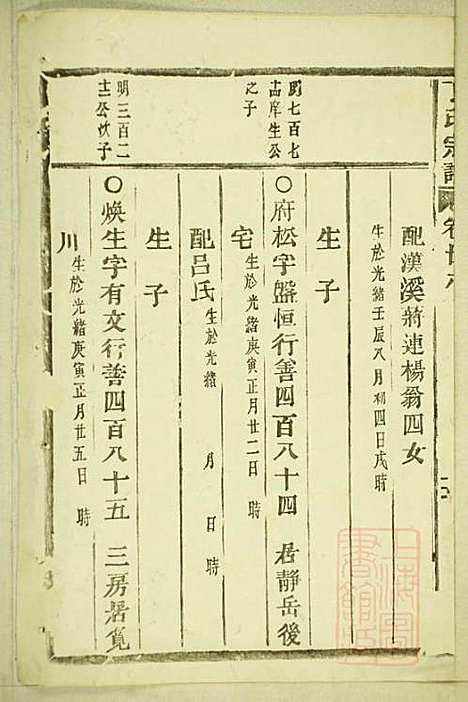 氏宗譜
卷廿六
配漢溪蔣連楊翁四女
生於光緒壬辰八月初四日戌時
生子
七百七
十六庠生公
之子
○府松字盤恒行善四百八十四 居靜岳後
宅
生於光緒庚寅正月廿二日 時
配呂氏
生於光緒 月 日 時
生子
明三百二
公次子
○煥生字有文行善四百八十五 三房居覓
川
生於光緒庚寅正月廿五日 時
上海圖書館藏